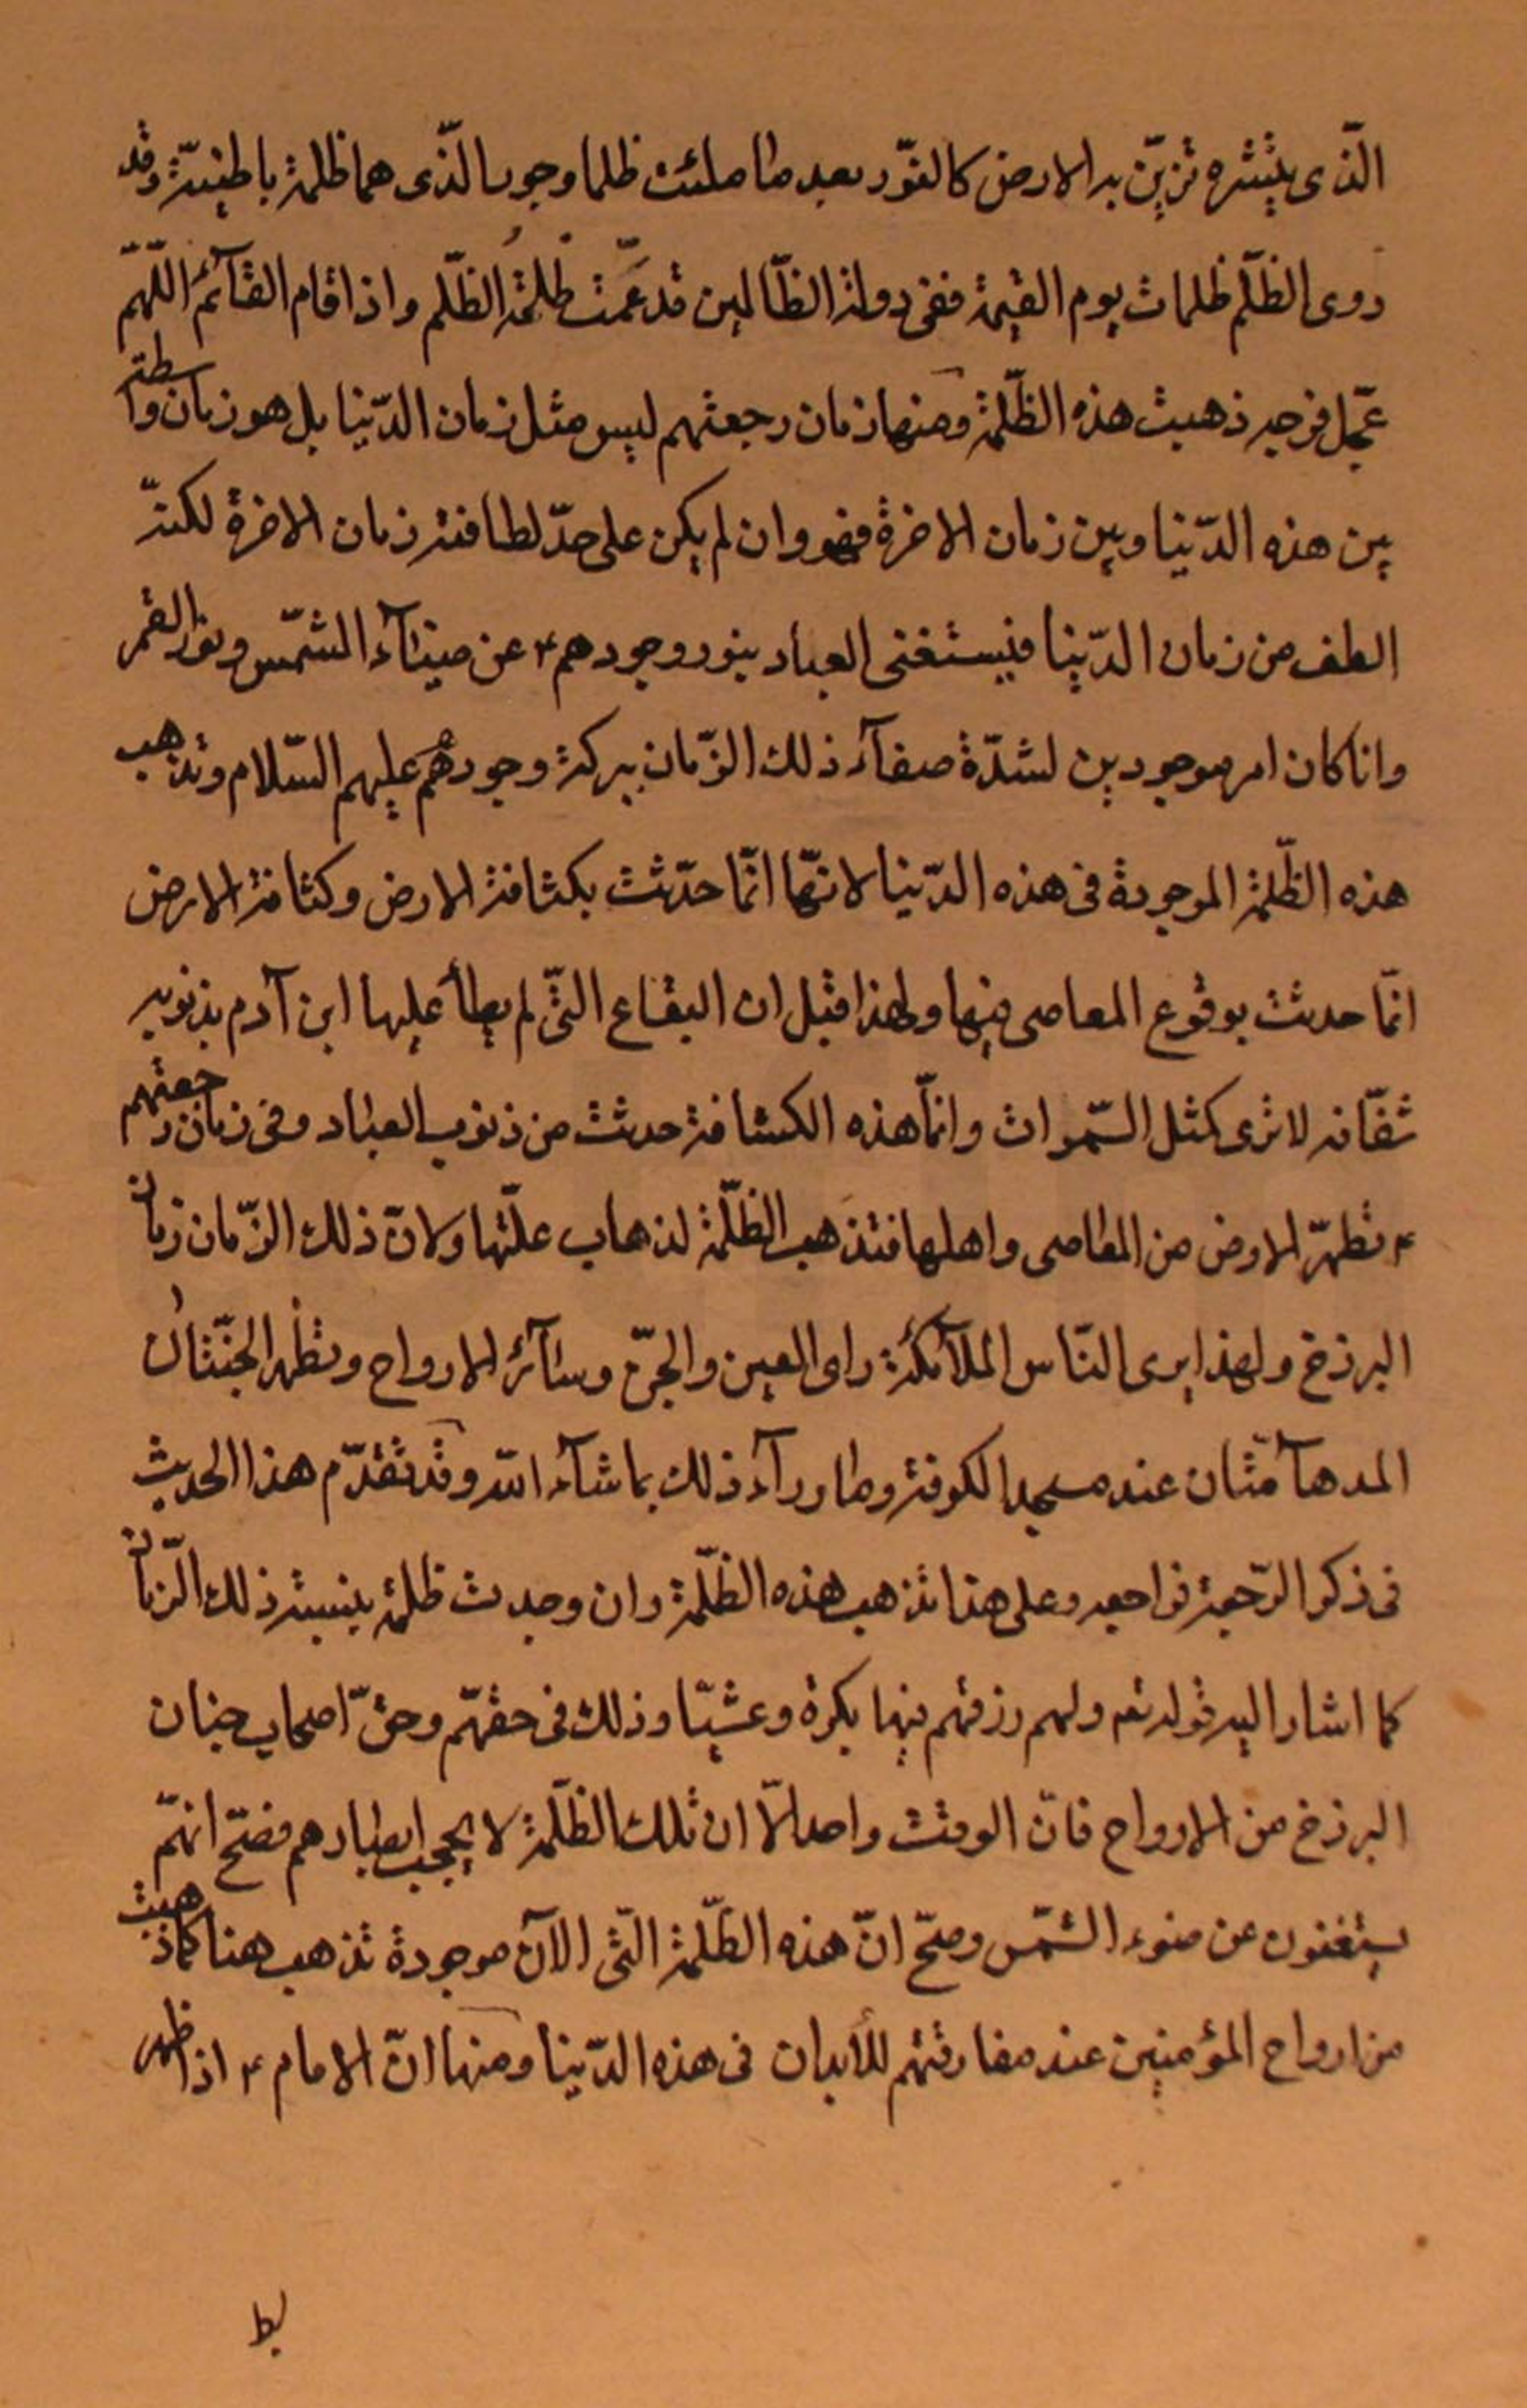 الّذى ينشره تزيّن به الارض كالنّور بعد ما ملئت ظلما وجورا الّذى هما ظلمة باطنيّة وقد
روى الظّلم ظلمات يوم القيمة ففى دولة الظّالمين قد عمّت ظلمة الظّلم واذا قام القآئم اللّهمّ
عجّل فرجه ذهبت هذه الظّلمة ومنها زمان رجعتهم ليس مثل زمان الدّنيا بل هو زمان واسطة
بين هذه الدّنيا وبين زمان الاخرة فهو وان لم يكن على حدّ لطافة زمان الاخرة لكنّه
الطف من زمان الدّنيا فيستغنى العباد بنور وجودهم ع عن ضيآء الشّمس ونور القمر
وانا كان امر موجودين لشدّة صفآء ذلك الزّمان ببركة وجودهم عليهم السّلام وتذهب
هذه الظّلمة الموجودة فى هذه الدّنيا لانّها انّما حدّثت بكثافة الارض وكثافة الارض
انّما حدثت بوقوع المعاصى فيها ولهذا قيل ان البقاع الّتى لم يطأ عليها ابن آدم بذنوبه
شفّافه لا ترى كمثل السّموات وانّما هذه الكثافة حدثت من ذنوب العباد وفى زمان رجعتهم
ع تطهّر الارض من المعاصى واهلها فتذهب الظّلمة لذهاب علّتها ولانّ ذلك الزّمان زمان
البرزخ ولهذا يرى النّاس الملآئكة راى العين والجنّ وسآئر الارواح وتظهر الجنّتان
المدهآمّتان عند مسجد الكوفة وما ورآء ذلك بما شآء اللّه وقد تقدّم هذا الحديث
فى ذكر الرّجعة فراجعه وعلى هذا تذهب هذه الظّلمة وان وجدت ظلمة بنسبة ذلك الزّمان
كما اشار اليه قوله تعم ولهم رزقهم فيها بكرة وعشيّا وذلك فى حقّهم وحقّ اصحاب جنان
البرزخ من الارواح فانّ الوقت واحد الّا ان تلك الظّلمة لا يحجب ابصارهم فصحّ انّهم
يستغنون عن ضوء الشّمس وصحّ انّ هذه الظّلمة الّتى الآن موجودة تذهب هنا كما ذهبت
من ارواح المؤمنين عند مفارقتهم للأبدان فى هذه الدّنيا ومنها انّ الامام ع اذا ظهر